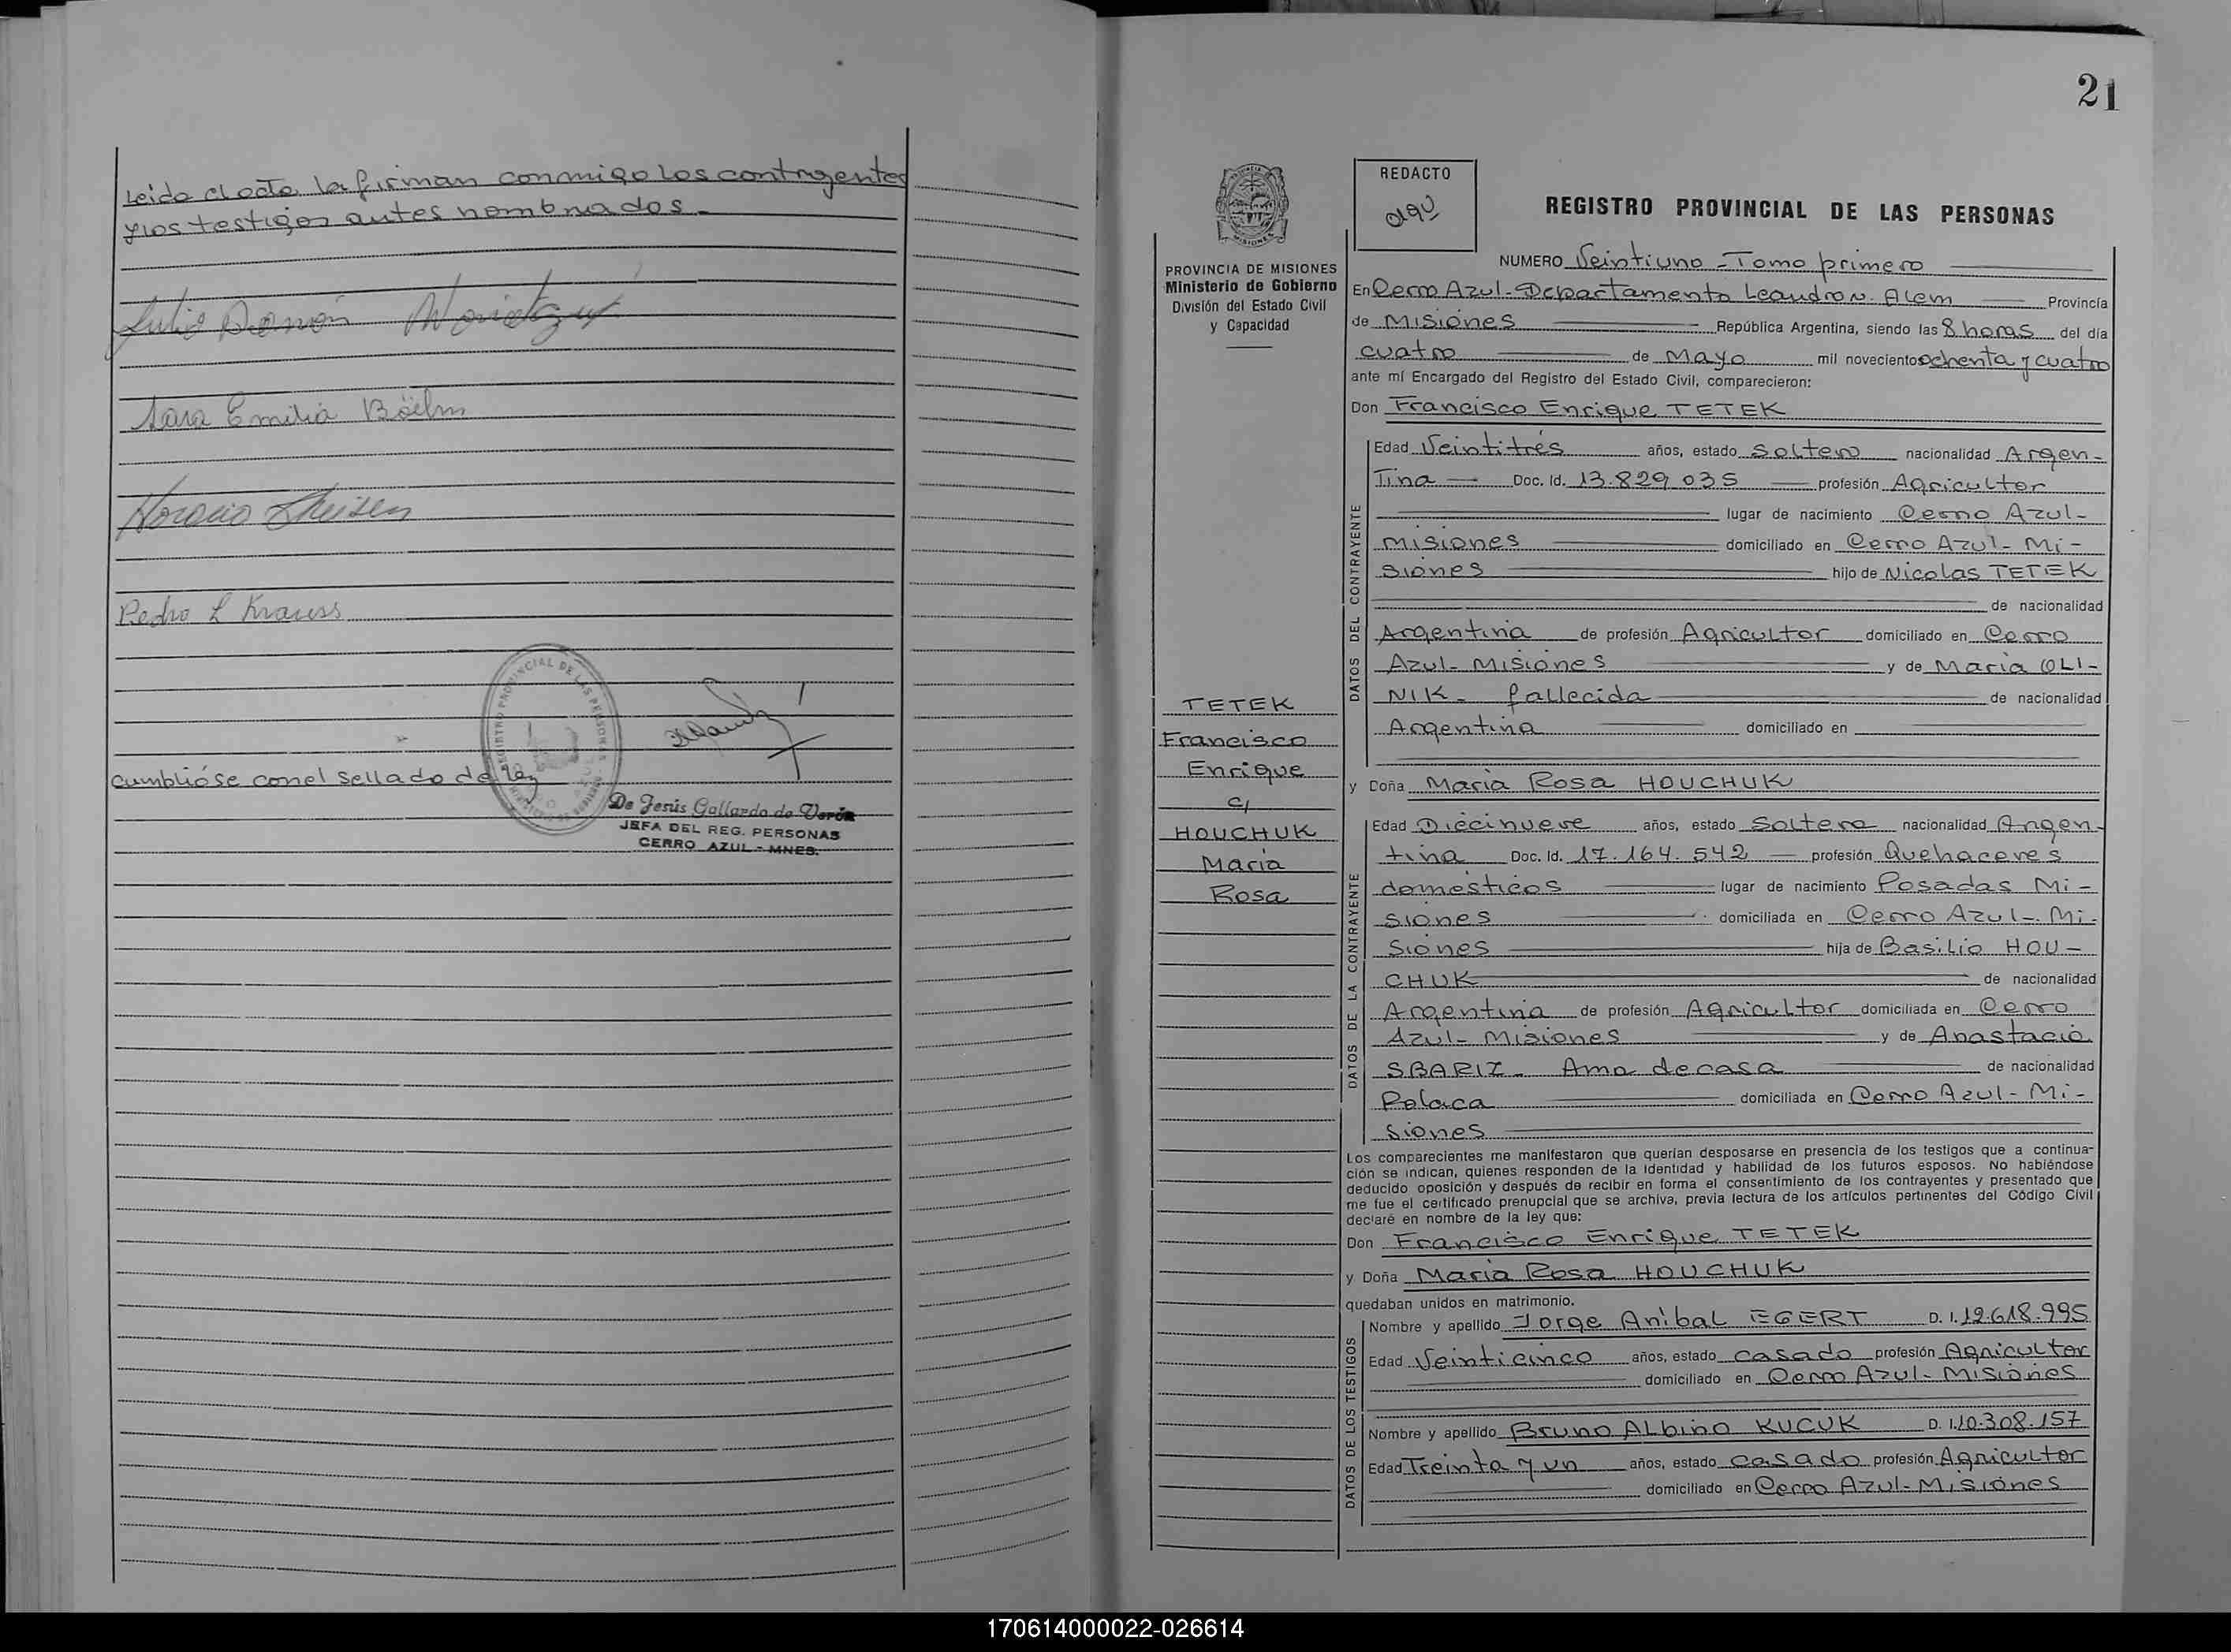 Leida el acta, la firman conmigo los contrayentes
y los testigos antes nombrados.
Julio Ramón
Sara Emilia Böehm
Horacio Theisen
Pedro L Krauss
REGISTRO PROVINCIAL DE LAS PERSONAS
cumblióse con el sellado de ley
De Jesús Gallardo de Verón
JEFA DEL REG. PERSONAS
CERRO AZUL - MNES.
21
MISIONES
PROVINCIA DE MISIONES
Ministerio de Gobierno
División del Estado Civil
y Capacidad
TETEK
Francisco
Enrique
c/
HOUCHUK
Maria
Rosa
REDACTO
REGISTRO PROVINCIAL DE LAS PERSONAS
NUMERO Veintiuno - Tomo primero
En Cerro Azul - Departamento Leandro N. Alem Provincia
de Misiones República Argentina, siendo las 8 horas del día
cuatro de Mayo mil novecientos ochenta y cuatro
ante mí Encargado del Registro del Estado Civil, comparecieron:
Don Francisco Enrique TETEK
DATOS DEL CONTRAYENTE
Edad Veintitrés años, estado Soltero nacionalidad Argen-
Tina Doc. Id. 13.829.035 profesión Agricultor
lugar de nacimiento Cerro Azul-
Misiones domiciliado en Cerro Azul- Mi-
siones hijo de Nicolas TETEK
de nacionalidad
Argentina de profesión Agricultor domiciliado en Cerro
Azul- Misiones y de Maria OLI-
NIK- fallecida de nacionalidad
Argentina domiciliado en
y Doña Maria Rosa HOUCHUK
DATOS DE LA CONTRAYENTE
Edad Diecinueve años, estado Soltera nacionalidad Argen-
tina Doc. Id. 17.164.542 profesión Quehaceres
domésticos lugar de nacimiento Posadas Mi-
siones domiciliada en Cerro Azul-. Mi-
siones hija de Basilio HOU-
CHUK de nacionalidad
Argentina de profesión Agricultor domiciliada en Cerro
Azul- Misiones y de Anastacia
SBARIZ- Ama de casa de nacionalidad
Polaca domiciliada en Cerro Azul- Mi-
siones
Los comparecientes me manifestaron que querían desposarse en presencia de los testigos que a continua-
ción se indican, quienes responden de la identidad y habilidad de los futuros esposos. No habiéndose
deducido oposición y después de recibir en forma el consentimiento de los contrayentes y presentado que
me fue el certificado prenupcial que se archiva, previa lectura de los artículos pertinentes del Código Civil
declaré en nombre de la ley que:
Don Francisco Enrique TETEK
y Doña Maria Rosa HOUCHUK
quedaban unidos en matrimonio.
DATOS DE LOS TESTIGOS
Nombre y apellido Jorge Anibal EGERT D. I. 12.618.995
Edad Veinticinco años, estado casado profesión Agricultor
domiciliado en Cerro Azul- Misiones
Nombre y apellido Bruno Albino KUCUK D. I. 10.308.157
Edad Treinta y un años, estado casado profesión Agricultor
domiciliado en Cerro Azul- Misiones
170614000022-026614